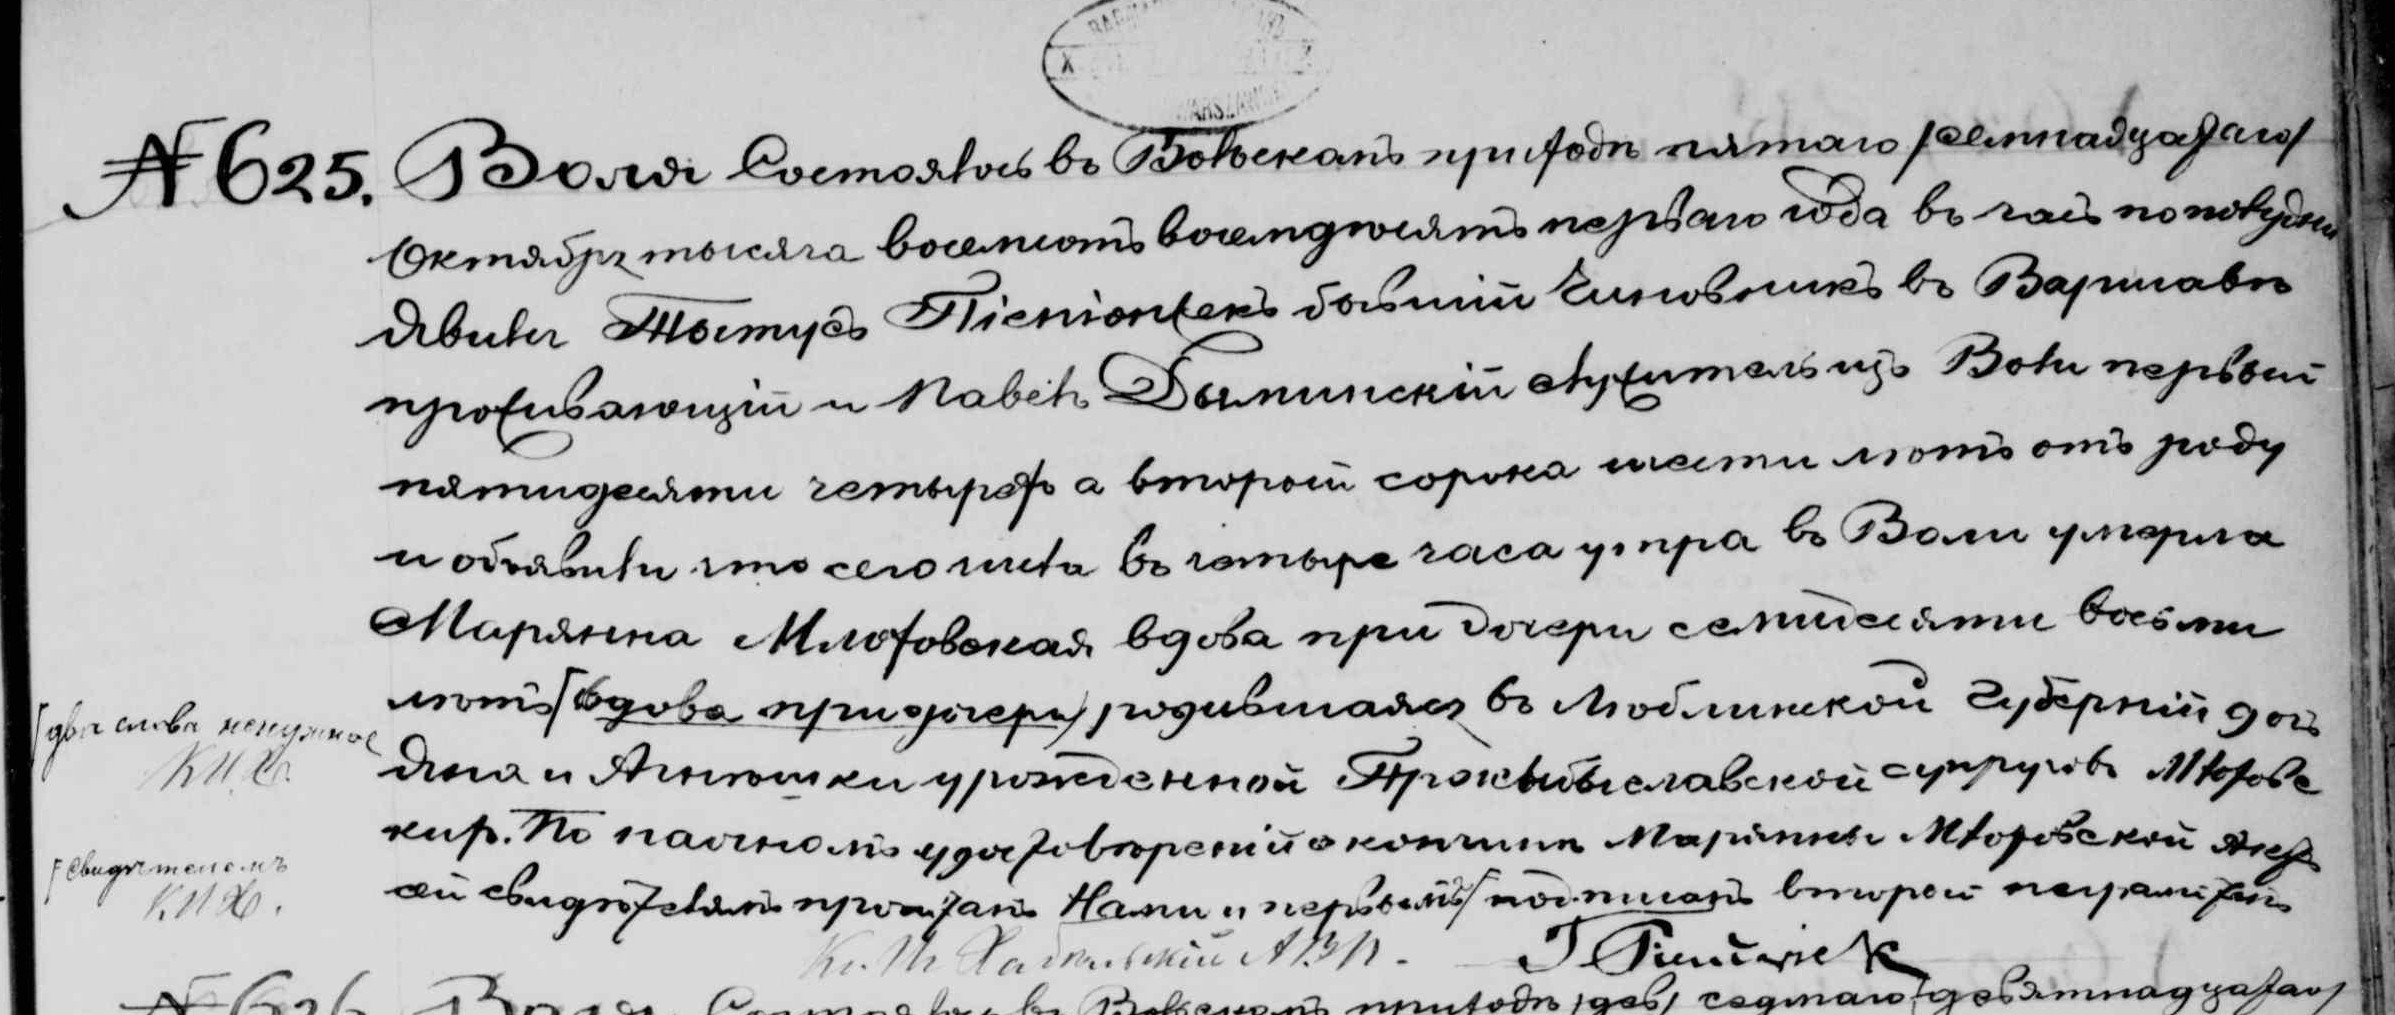 WARSZAW
№ 625. Воля Состоялось въ Вольскомъ приходѣ пятаго /семнадцатаго/
Октября тысяча восемьсотъ восемдесятъ перваго года въ часъ пополудни
явились Піепіонтекъ бывшій Чиновникъ въ Варшавѣ
проживающій и Павелъ Дылинскій служитель изъ Воли первый
пятидесяти четырехъ а второй сорока шести лѣтъ отъ роду
и объявили что сего числа въ четыре часа утра въ Воли умерла
Марянна Млотовская вдова при дочери семидесяти восьми
лѣтъ /вдова при дочери/ родившаяся въ Люблинской Губерніи дочь
Яна и Агнѣшки урожденной супруговъ Млотовс
кихъ. По настномъ удостовѣреніи о кончинѣ Марянны Млотовской Актъ
сей свидѣтелямъ прочитанъ Нами и первымъ/ подписанъ второй неграмотенъ
/два слова ненужное
К И Х.
/свидѣтелемъ
К И Х.
А В П.
№ 626. Воля Состоялось въ Вольскомъ приходѣ /седмаго /девятнадцатаго/